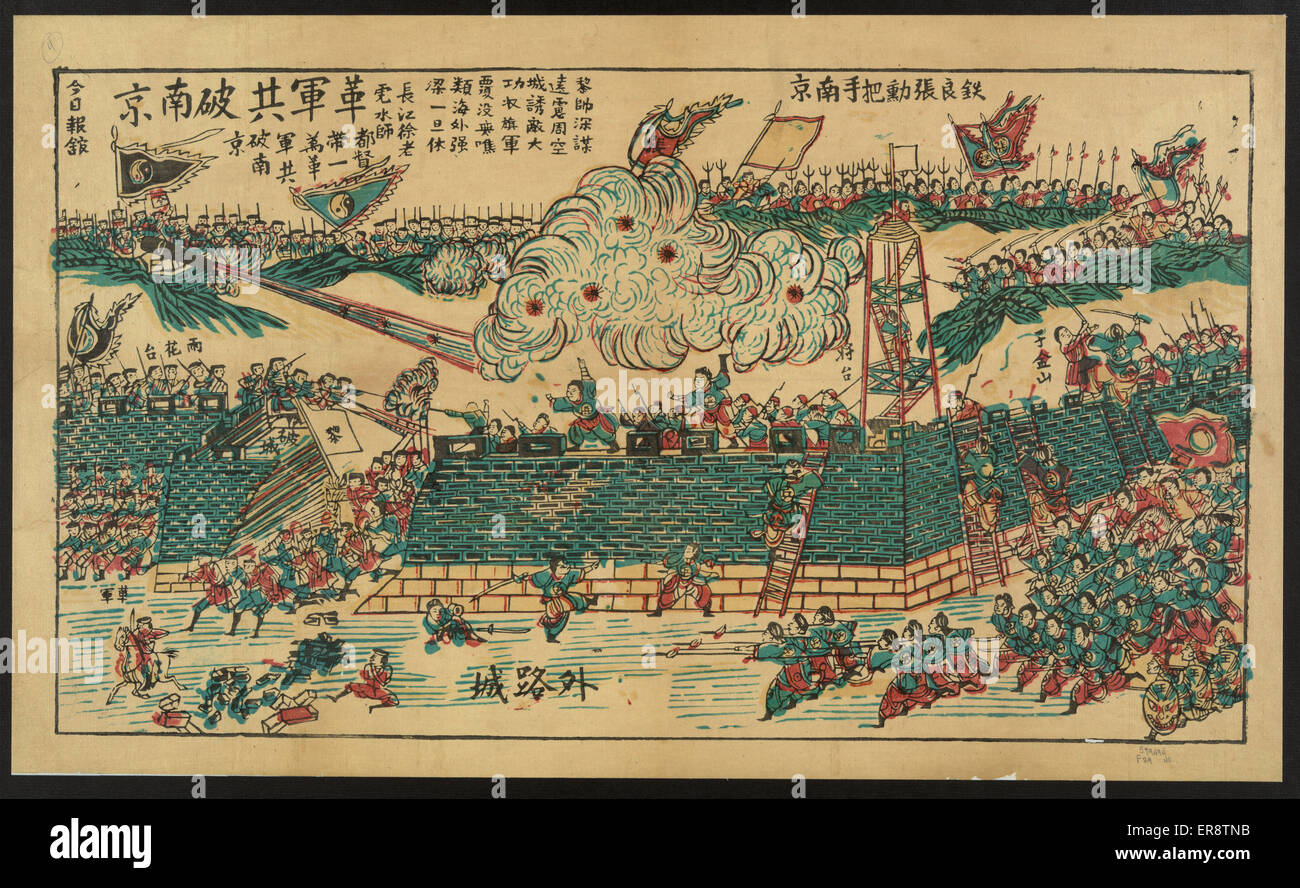 鉄良張勳把手南京
黎帥深謀
遠慮周空
城誘敵大
功旗軍
覆没無噍
類海外强
梁一旦休
長江徐老
虎水師
都督
帶一
萬革
軍共
破南
京
革軍共破南京
今日報舘
雨花台
将台
子金山
破城
黎
革軍
外路城
alamy
Image ID: ER8TNB
www.alamy.com